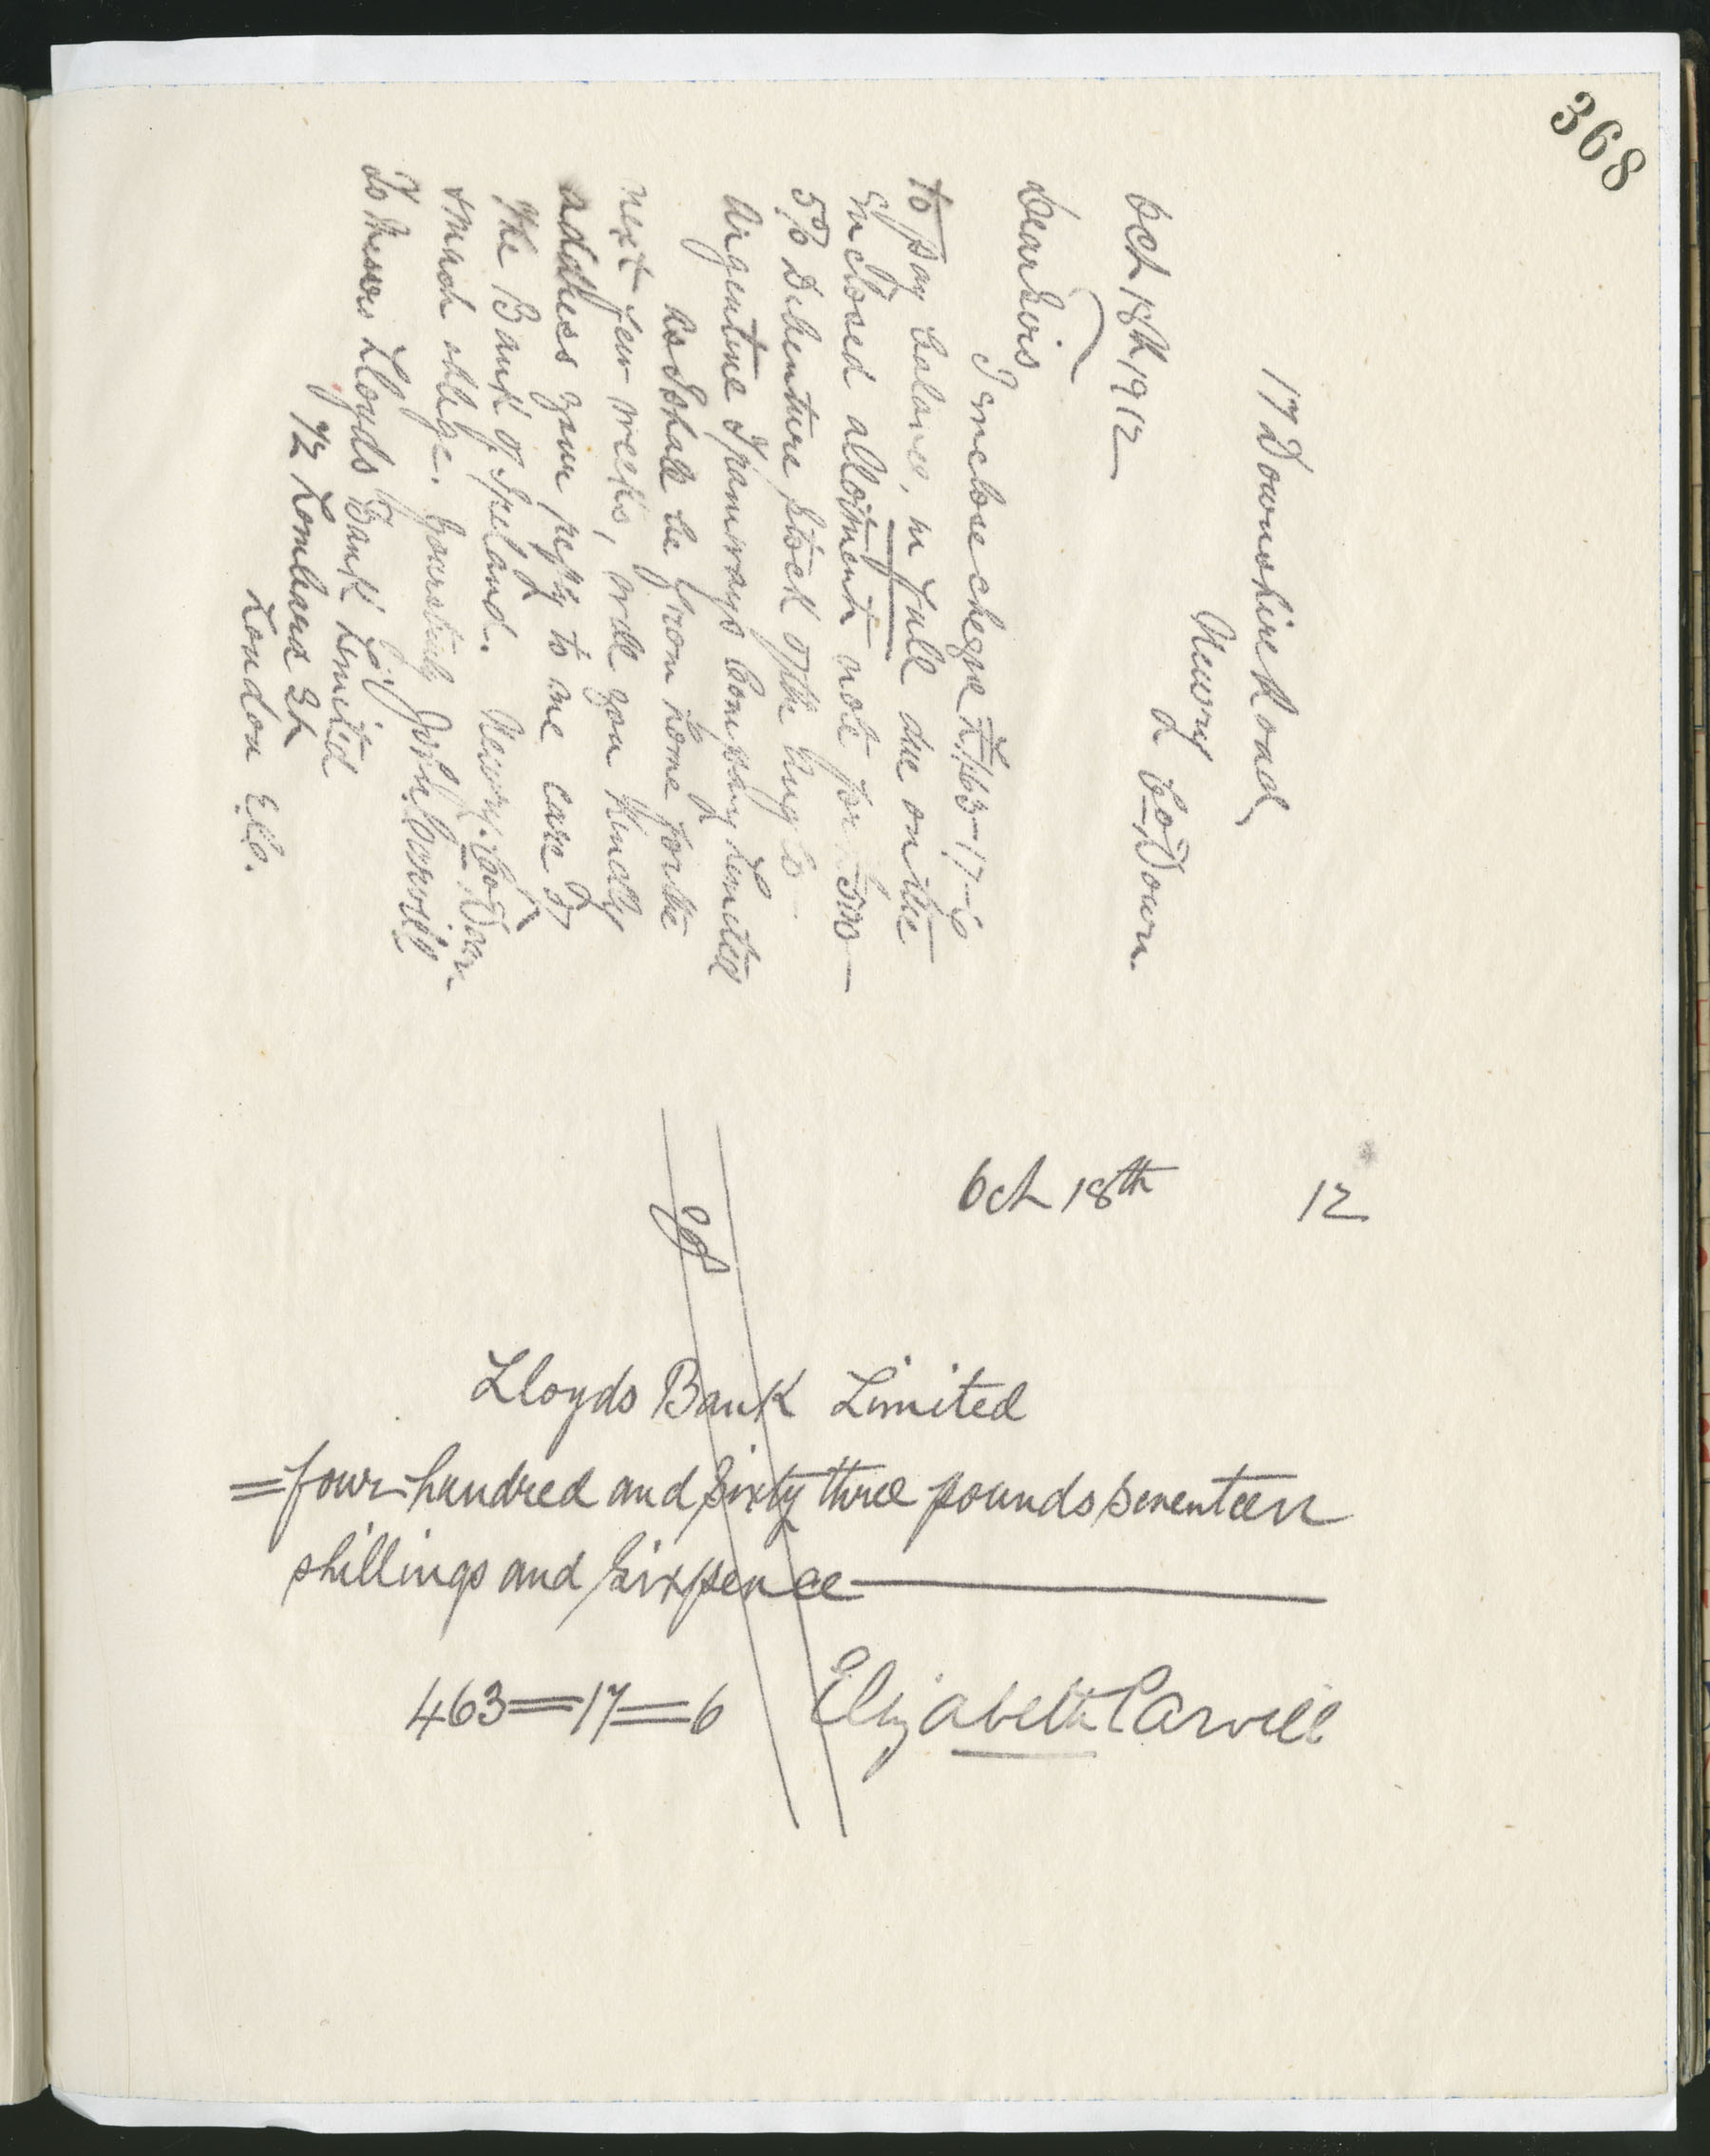 368
17 Downshire Road
Newry
Co Down.
Oct 18th 1912
Dear Sirs
I enclose cheque £463-17-6
to pay balance, in full due on the
enclosed allotment note for £500
5% Debenture Stock of the Anglo-
Argentine Tramways Company Limited
As I shall be from home for the
next few weeks, will you kindly
address your reply to me care of
The Bank of Ireland. Newry. Co Down
& much oblige. Yours truly
Carvill
To Messrs Lloyds Bank Limited
72 Lombard St
London E.C.
Oct 18th 12
&Co
Lloyds Bank Limited
=four hundred and sixty three pounds seventeen
shillings and sixpence
463=17=6 Elizabeth Carvill